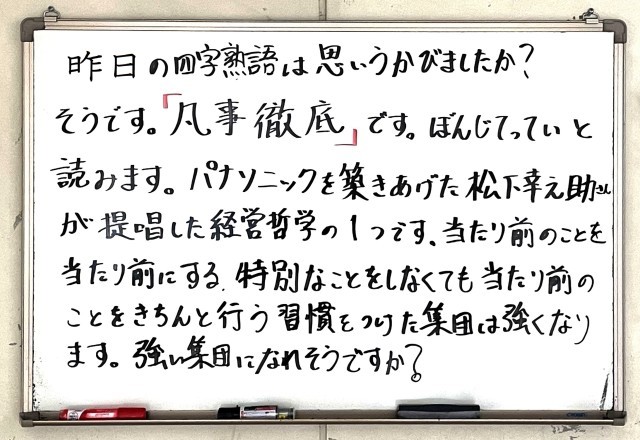 昨日の四字熟語は思いうかびましたか?
そうです。「凡事徹底」です。ぼんじてっていと
読みます。パナソニックを築きあげた松下幸之助さん
が提唱した経営哲学の1つです。当たり前のことを
当たり前にする。特別なことをしなくても当たり前の
ことをきちんと行う習慣をつけた集団は強くなり
ます。強い集団になれそうですか?